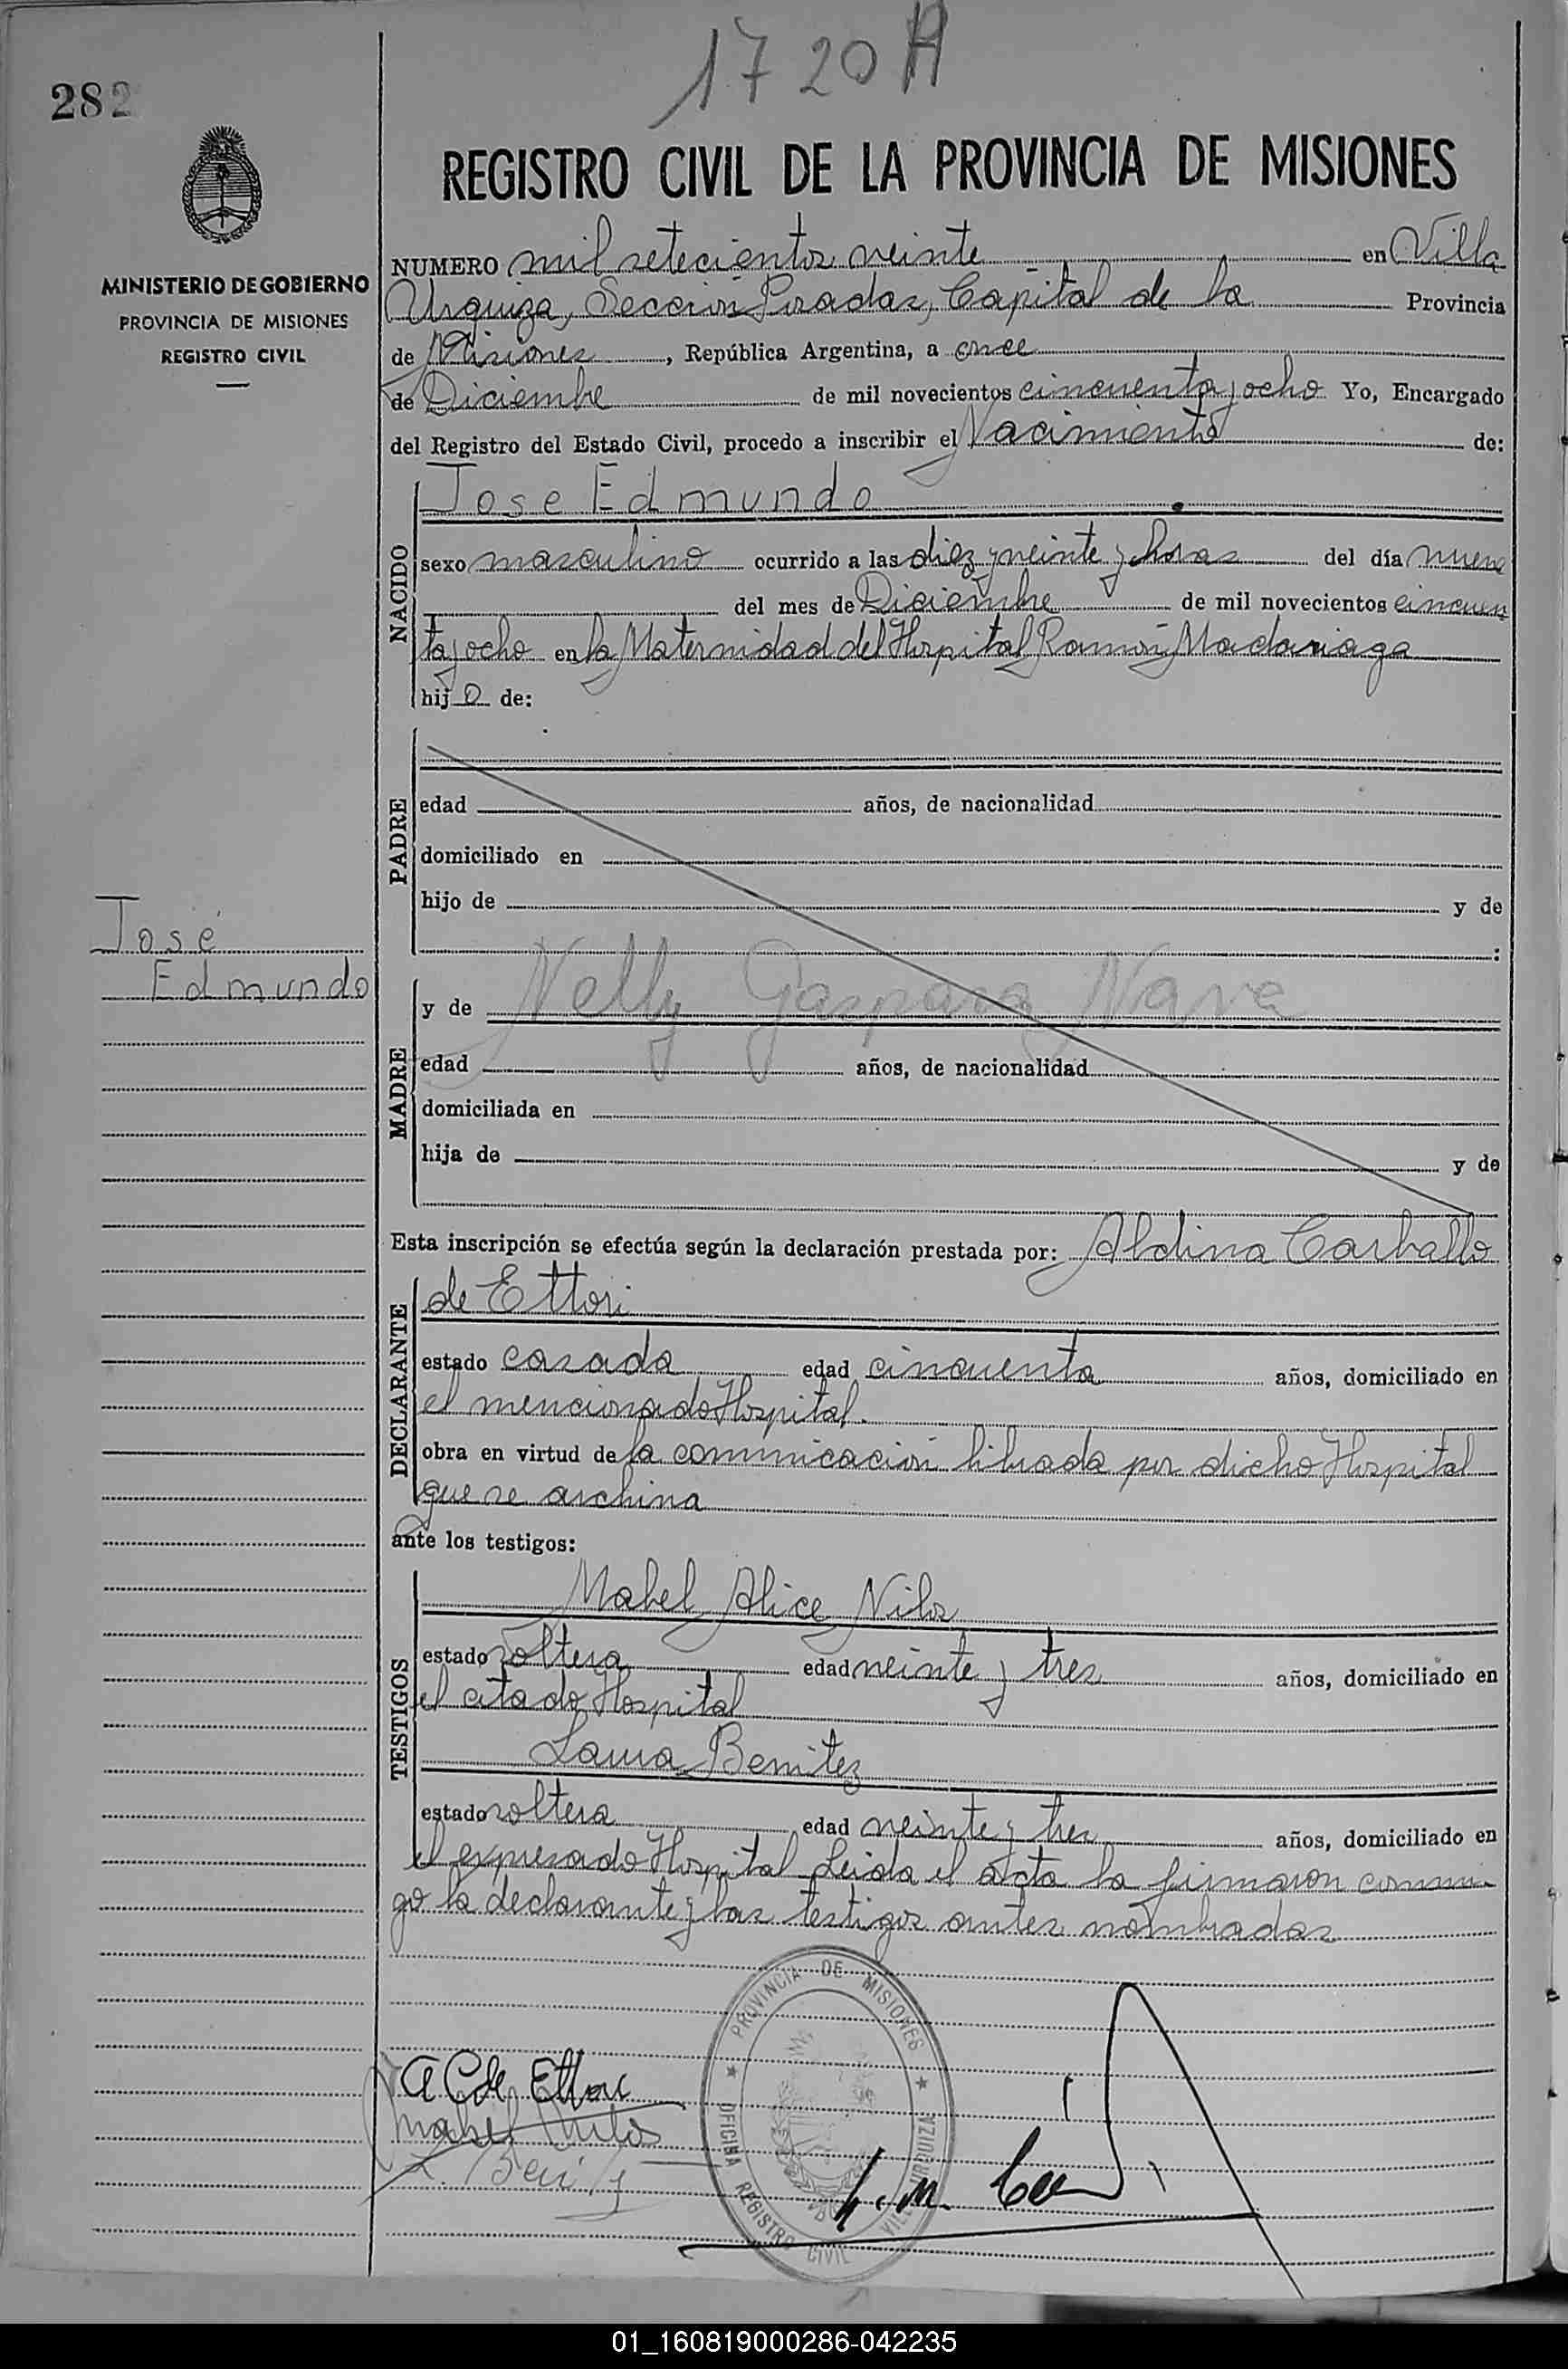 1720 A
282
REGISTRO CIVIL DE LA PROVINCIA DE MISIONES
MINISTERIO DE GOBIERNO
PROVINCIA DE MISIONES
REGISTRO CIVIL
NUMERO mil setecientos veinte en Villa
Urquiza, Sección Posadas, Capital de la Provincia
de Misiones, República Argentina, a once
de Diciembre de mil novecientos cincuenta y ocho Yo, Encargado
del Registro del Estado Civil, procedo a inscribir el Nacimiento de:
NACIDO
Jose Edmundo
sexo masculino ocurrido a las diez y veinte y horas del día nueve
del mes de Diciembre de mil novecientos cincuen
ta y ocho en la Maternidad del Hospital Ramón Madariaga
hijo de:
PADRE
edad años, de nacionalidad
domiciliado en
hijo de y de
:
José
Edmundo
MADRE
y de Nelly Gaspara Nare
edad años, de nacionalidad
domiciliada en
hija de y de
Esta inscripción se efectúa según la declaración prestada por: Aldina Carballo
DECLARANTE
de Ettori
estado casada edad cincuenta años, domiciliado en
el mencionado Hospital.
obra en virtud de la comunicación librada por dicho Hospital
que se archiva
ante los testigos:
TESTIGOS
Mabel Alice Nilos
estado soltera edad veinte y tres años, domiciliado en
el citado Hospital
Laura Benitez
estado soltera edad veinte y tres años, domiciliado en
el expresado Hospital Leida el acta la firmaron conmi-
go la declarante y las testigos antes nombradas
PROVINCIA DE MISIONES
OFICINA REGISTRO CIVIL VILLA URQUIZA
A C de Ettori
Mabel Nilos
L. Benitez
01_160819000286-042235